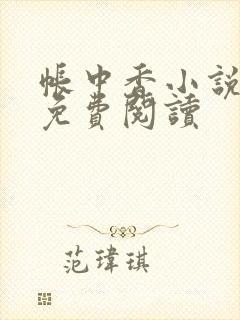 帳中香小說
免費閱讀
范瑋琪